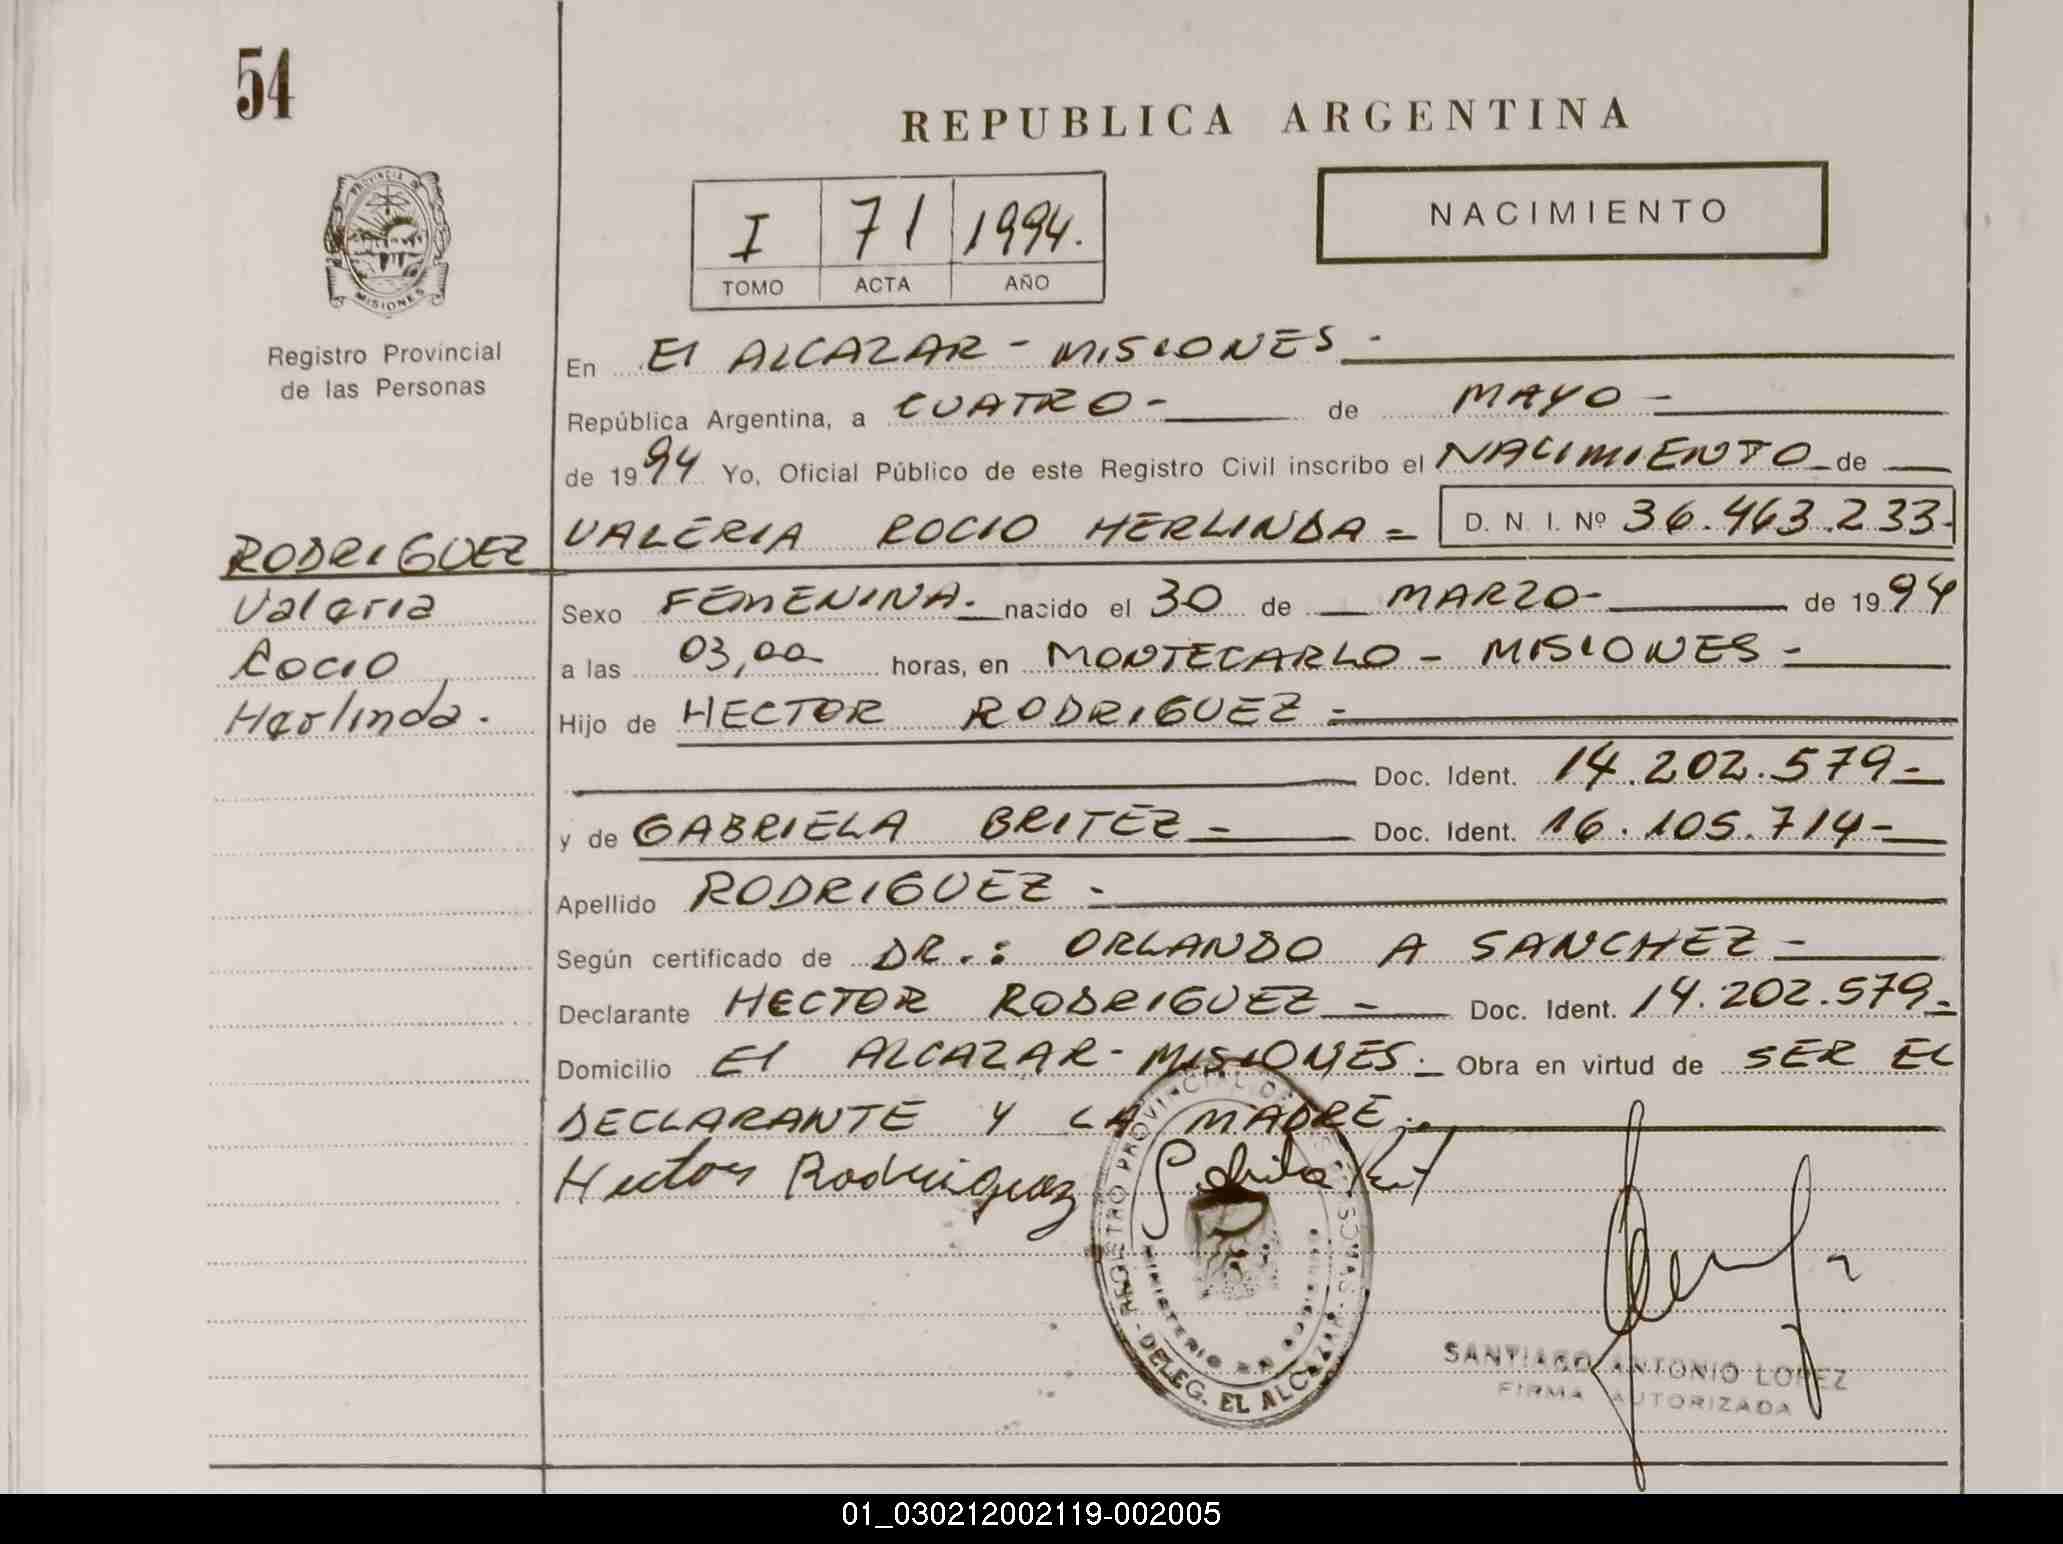 54
REPUBLICA ARGENTINA
PROVINCIA DE
MISIONES
I 71 1994.
TOMO ACTA AÑO
NACIMIENTO
Registro Provincial
de las Personas
En El ALCAZAR - MISIONES -
República Argentina, a CUATRO - de MAYO -
de 1994 Yo, Oficial Público de este Registro Civil inscribo el NACIMIENTO de
RODRIGUEZ VALERIA ROCIO HERLINDA = D. N. I. Nº 36.463.233-
Valeria Sexo FEMENINA. nacido el 30 de MARZO- de 1994
Rocio a las 03,00 horas, en MONTECARLO - MISIONES -
Herlinda. Hijo de HECTOR RODRIGUEZ -
Doc. Ident. 14.202.579-
y de GABRIELA BRITEZ - Doc. Ident. 16.105.714-
Apellido RODRIGUEZ -
Según certificado de DR.: ORLANDO A SANCHEZ -
Declarante HECTOR RODRIGUEZ - Doc. Ident. 14.202.579-
Domicilio El ALCAZAR - MISIONES - Obra en virtud de SER EL
DECLARANTE Y LA MADRE.
Hector Rodriguez
REGISTRO PROVINCIAL DE
DELEG. EL ALCAZAR
MINISTERIO DE GOBIERNO
SANTIAGO ANTONIO LOPEZ
FIRMA AUTORIZADA
01_030212002119-002005